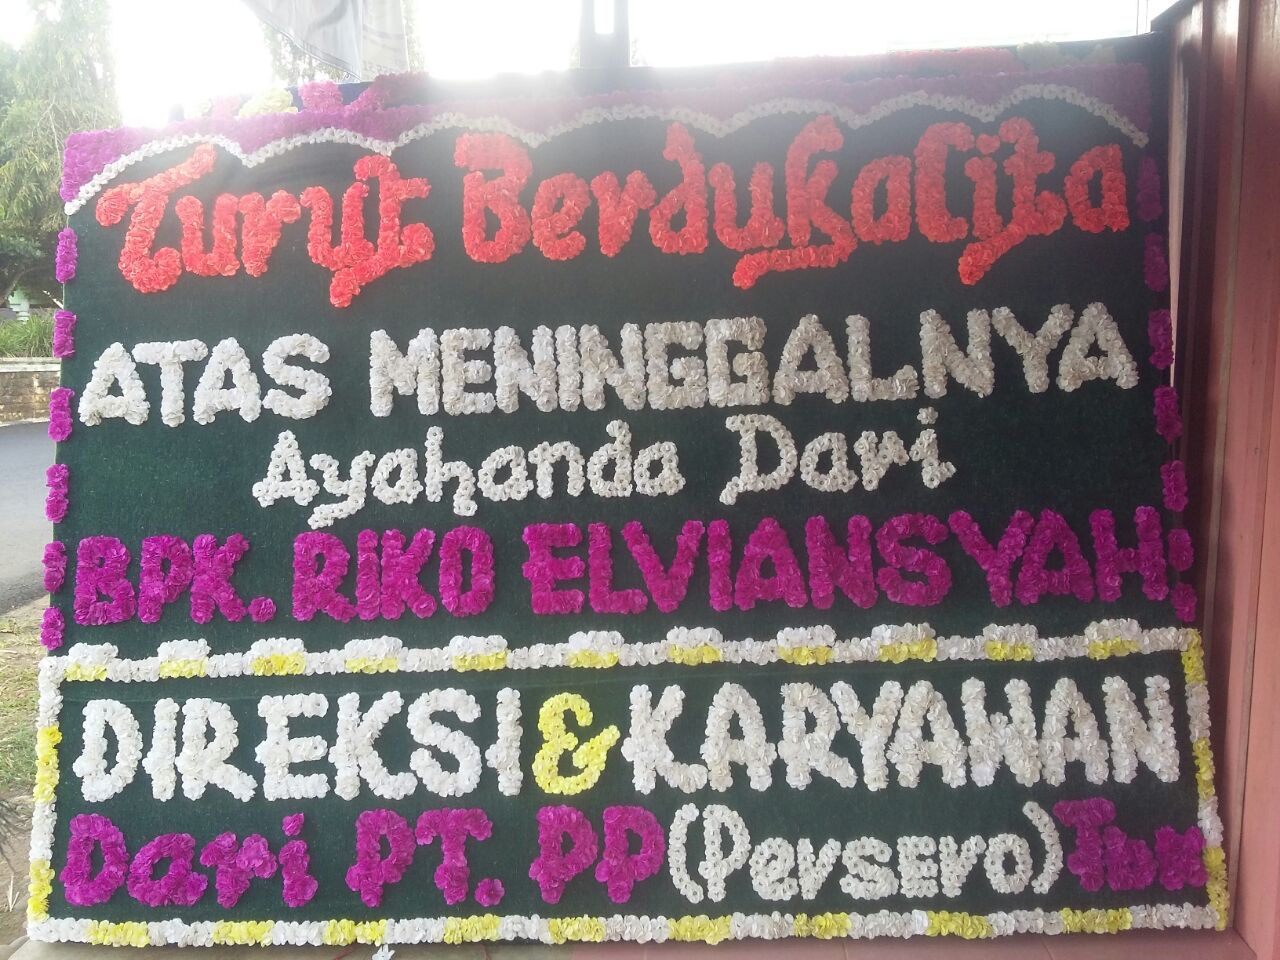 Turut BerdukaCita
ATAS MENINGGALNYA
Ayahanda Dari
BPK. RiKO ELVIANSYAH
DIREKSI & KARYAWAN
Dari PT. PP (PersErO) Tbk